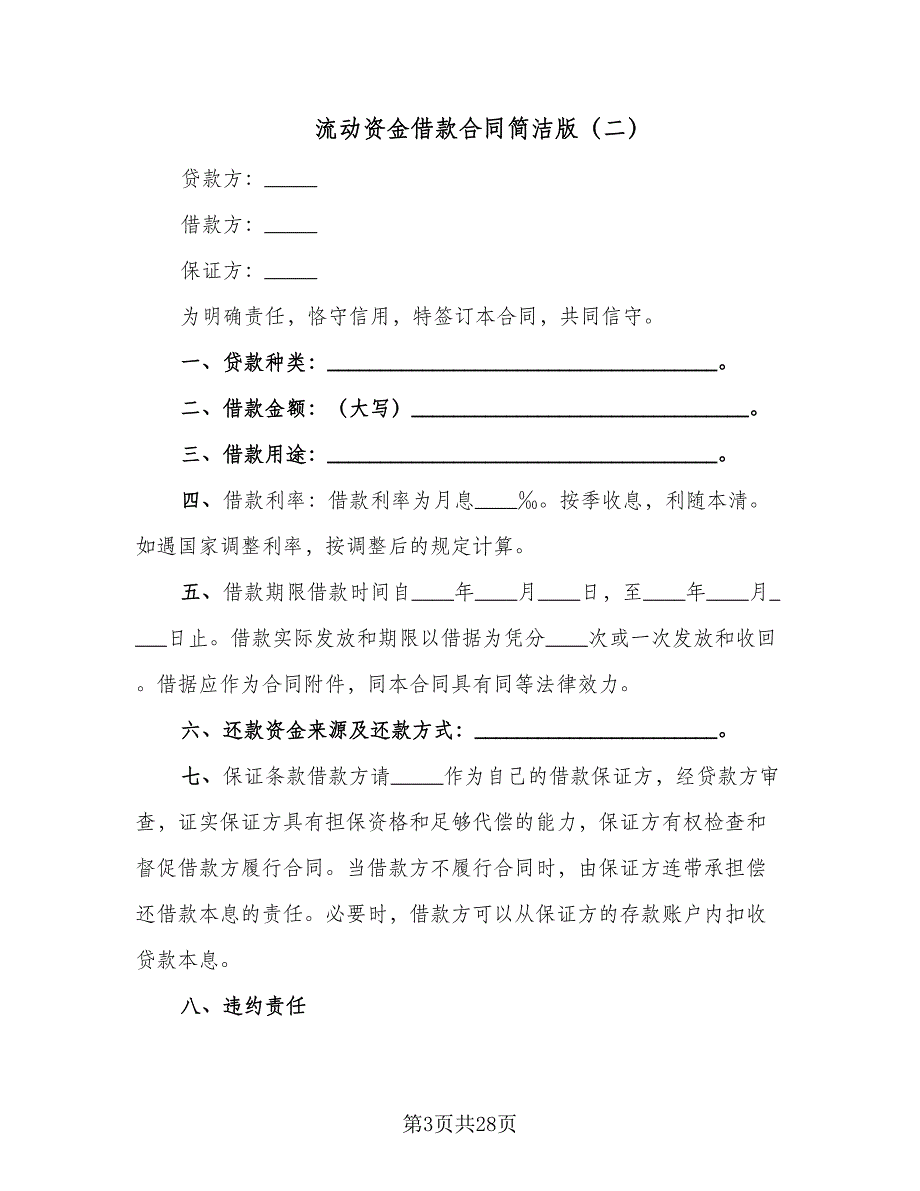 流动资金借款合同简洁版（二）
贷款方：_____
借款方：_____
保证方：_____
为明确责任，恪守信用，特签订本合同，共同信守。
一、贷款种类：_____________________________________。
二、借款金额：（大写）________________________________。
三、借款用途：_____________________________________。
四、借款利率：借款利率为月息____‰。按季收息，利随本清。
如遇国家调整利率，按调整后的规定计算。
五、借款期限借款时间自____年____月____日，至____年____月_
___日止。借款实际发放和期限以借据为凭分____次或一次发放和收回
。借据应作为合同附件，同本合同具有同等法律效力。
六、还款资金来源及还款方式：_______________________。
七、保证条款借款方请_____作为自己的借款保证方，经贷款方审
查，证实保证方具有担保资格和足够代偿的能力，保证方有权检查和
督促借款方履行合同。当借款方不履行合同时，由保证方连带承担偿
还借款本息的责任。必要时，借款方可以从保证方的存款账户内扣收
贷款本息。
八、违约责任
第3页共28页